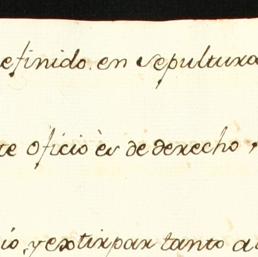 efinido. en sepultura
te oficio ès de derecho,
io, y extirpar tanto a